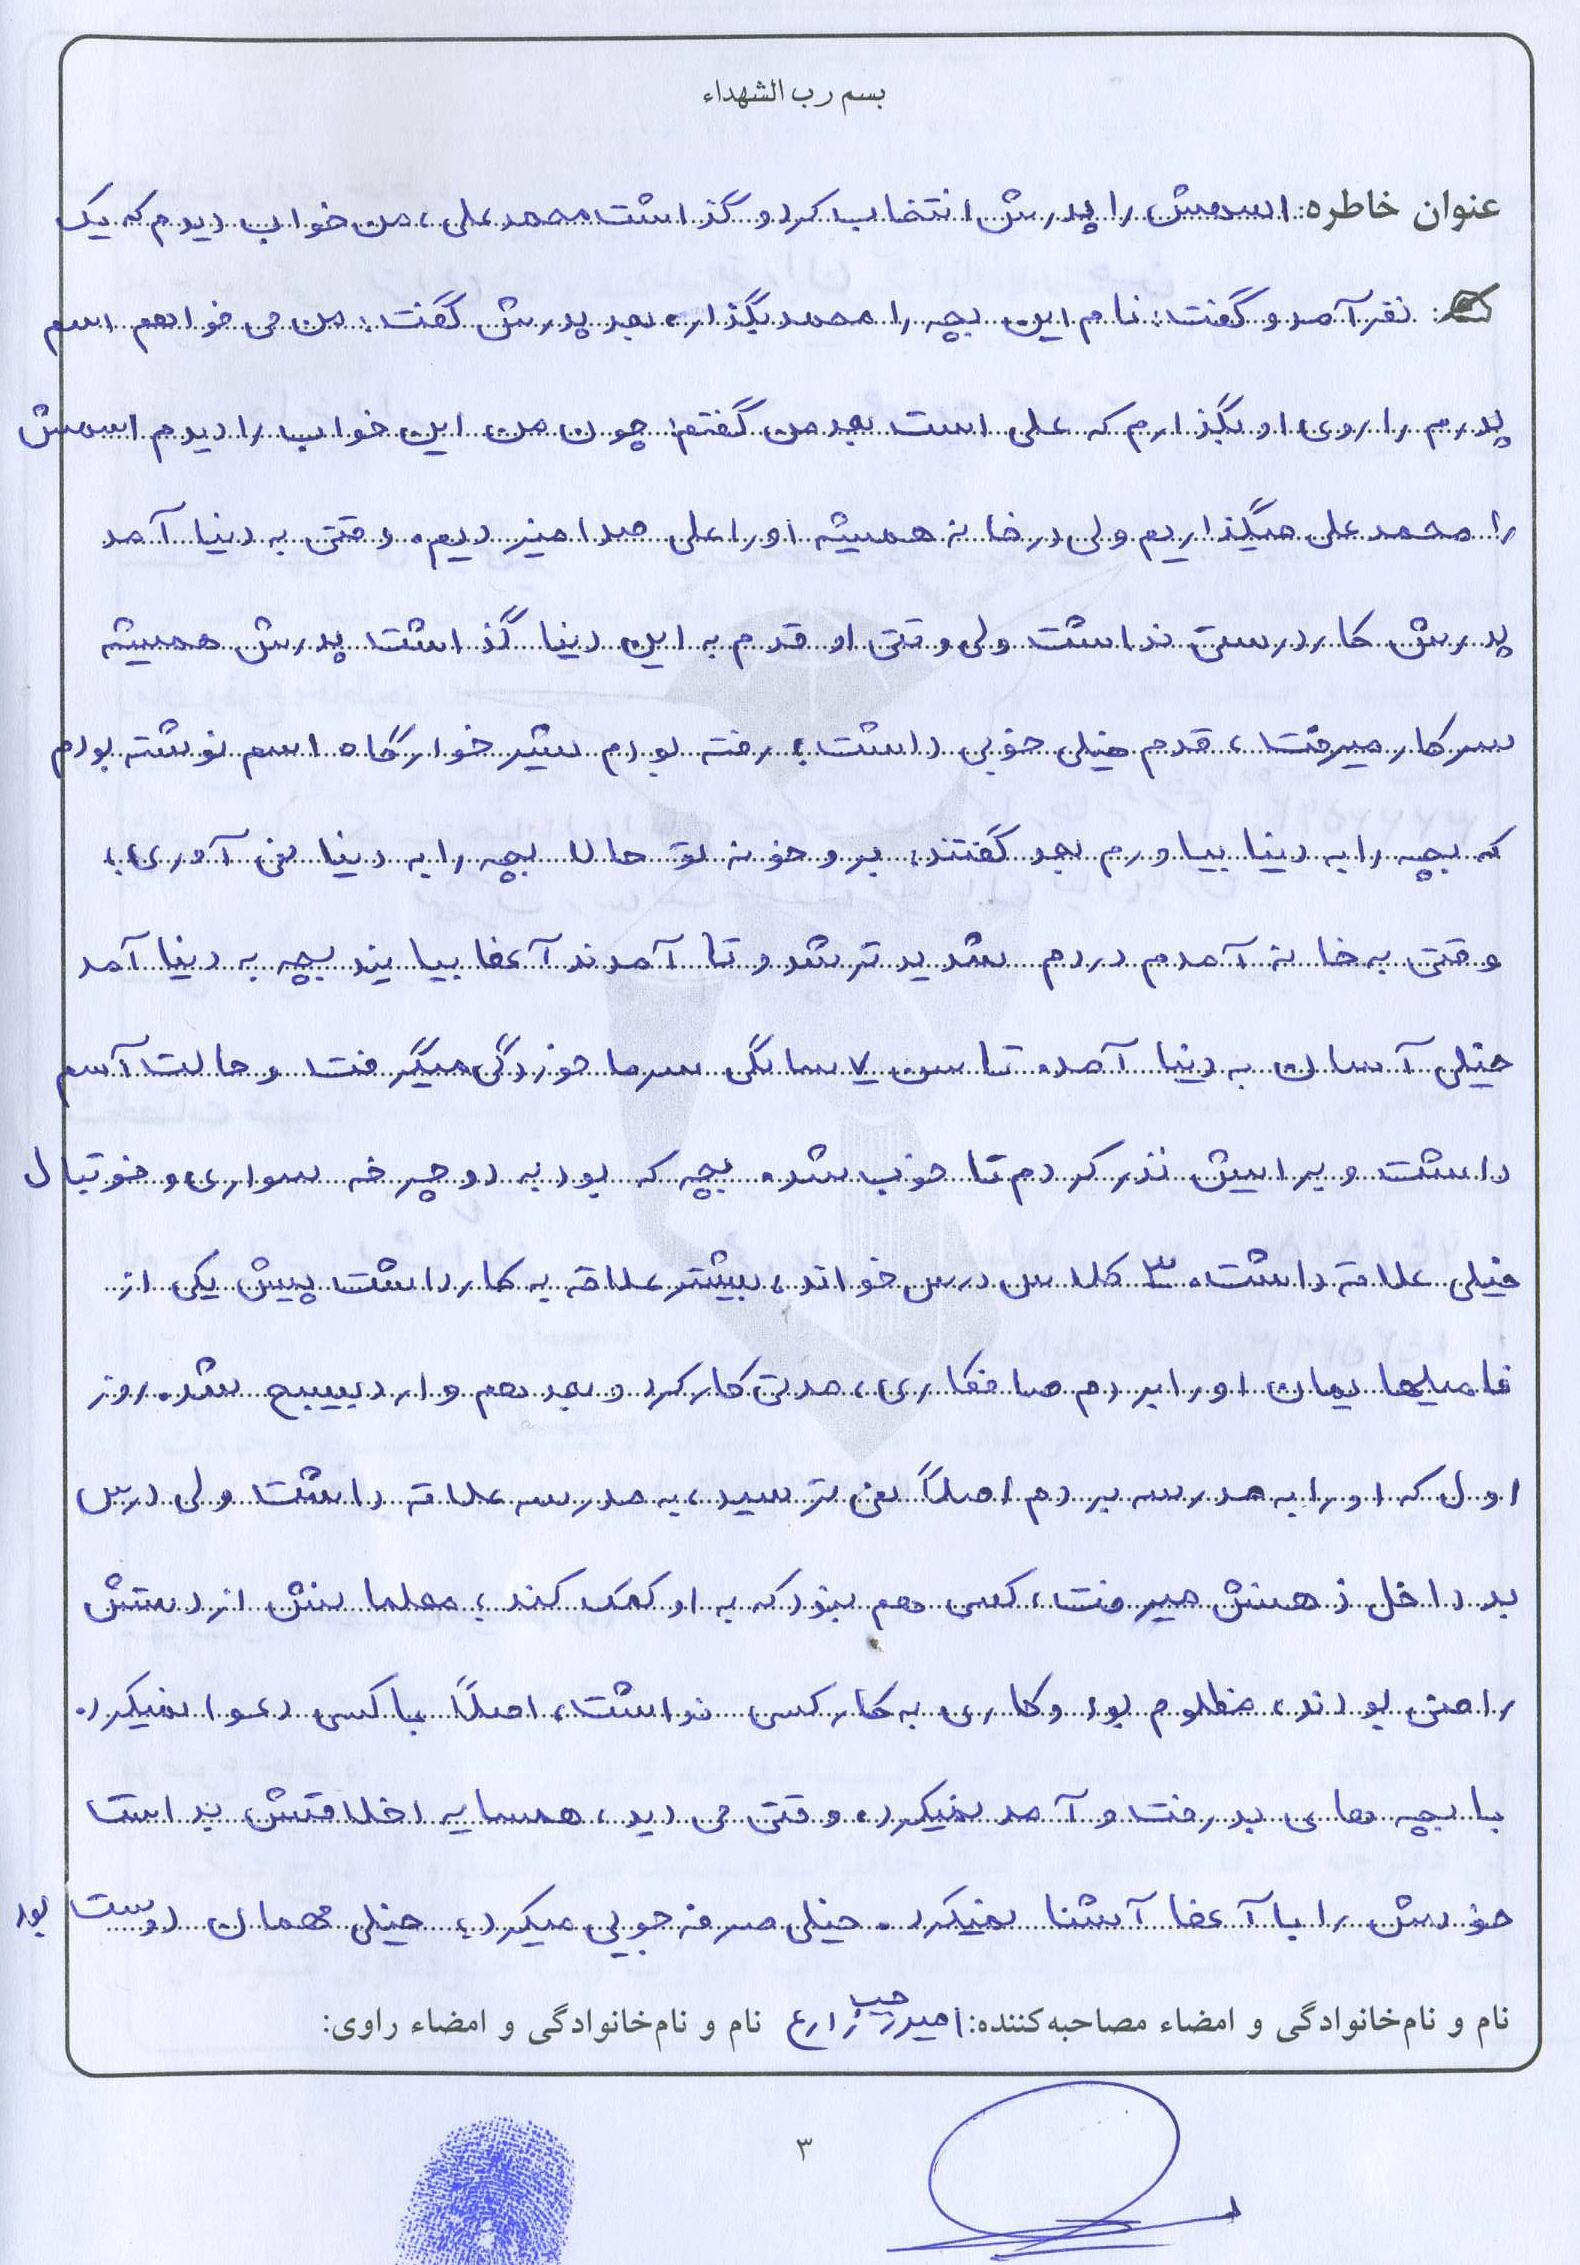 بسم رب الشهداء
عنوان خاطره: اسمش را پدرش انتخاب کرد و گذاشت محمد علی، من خواب دیدم که یک
نفر آمد و گفت: نام این بچه را محمد بگذار، بعد پدرش گفت: من می خواهم اسم
پدرم را روی او بگذارم که علی است بعد من گفتم: چون من این خواب را دیدم اسمش
را محمد علی میگذاریم ولی در خانه همیشه او را علی صدا میزدیم. وقتی به دنیا آمد
پدرش کار درستی نداشت ولی وقتی او قدم به این دنیا گذاشت پدرش همیشه
سر کار میرفت، قدم خیلی خوبی داشت؛ رفته بودم شیر خوارگاه اسم نوشته بودم
که بچه را به دنیا بیاورم بعد گفتند: برو خونه تو حالا بچه را به دنیا نمی آوری؛
وقتی به خانه آمدم دردم شدید تر شد و تا آمدند آنها بیایند بچه به دنیا آمد
خیلی آسان به دنیا آمد. تا سن ۷ سالگی سرما خوردگی میگرفت و حالت آسم
داشت و برایش نذر کردم تا خوب شد. بچه که بود به دوچرخه سواری و فوتبال
خیلی علاقه داشت. ۳ کلاس درس خواند، بیشتر علاقه به کار داشت پیش یکی از
فامیلهایمان او را بردم صافکاری، مدتی کار کرد و بعد هم وارد بسیج شد. روز
اول که او را به مدرسه بردم اصلاً نمی ترسید، به مدرسه علاقه داشت ولی درس
بد داخل ذهنش میرفت، کسی هم نبود که به او کمک کند؛ معلمانش از دستش
راضی بودند، مظلوم بود و کاری به کار کسی نداشت، اصلاً با کسی دعوا نمیکرد.
با بچه های بد رفت و آمد نمیکرد، وقتی می دید، همسایه اخلاقش بد است
خودش را با آنها آشنا نمیکرد. خیلی صرفه جویی میکرد، خیلی مهمان دوست بود
نام و نام‌خانوادگی و امضاء مصاحبه‌کننده: امیر زارع نام و نام‌خانوادگی و امضاء راوی:
۳